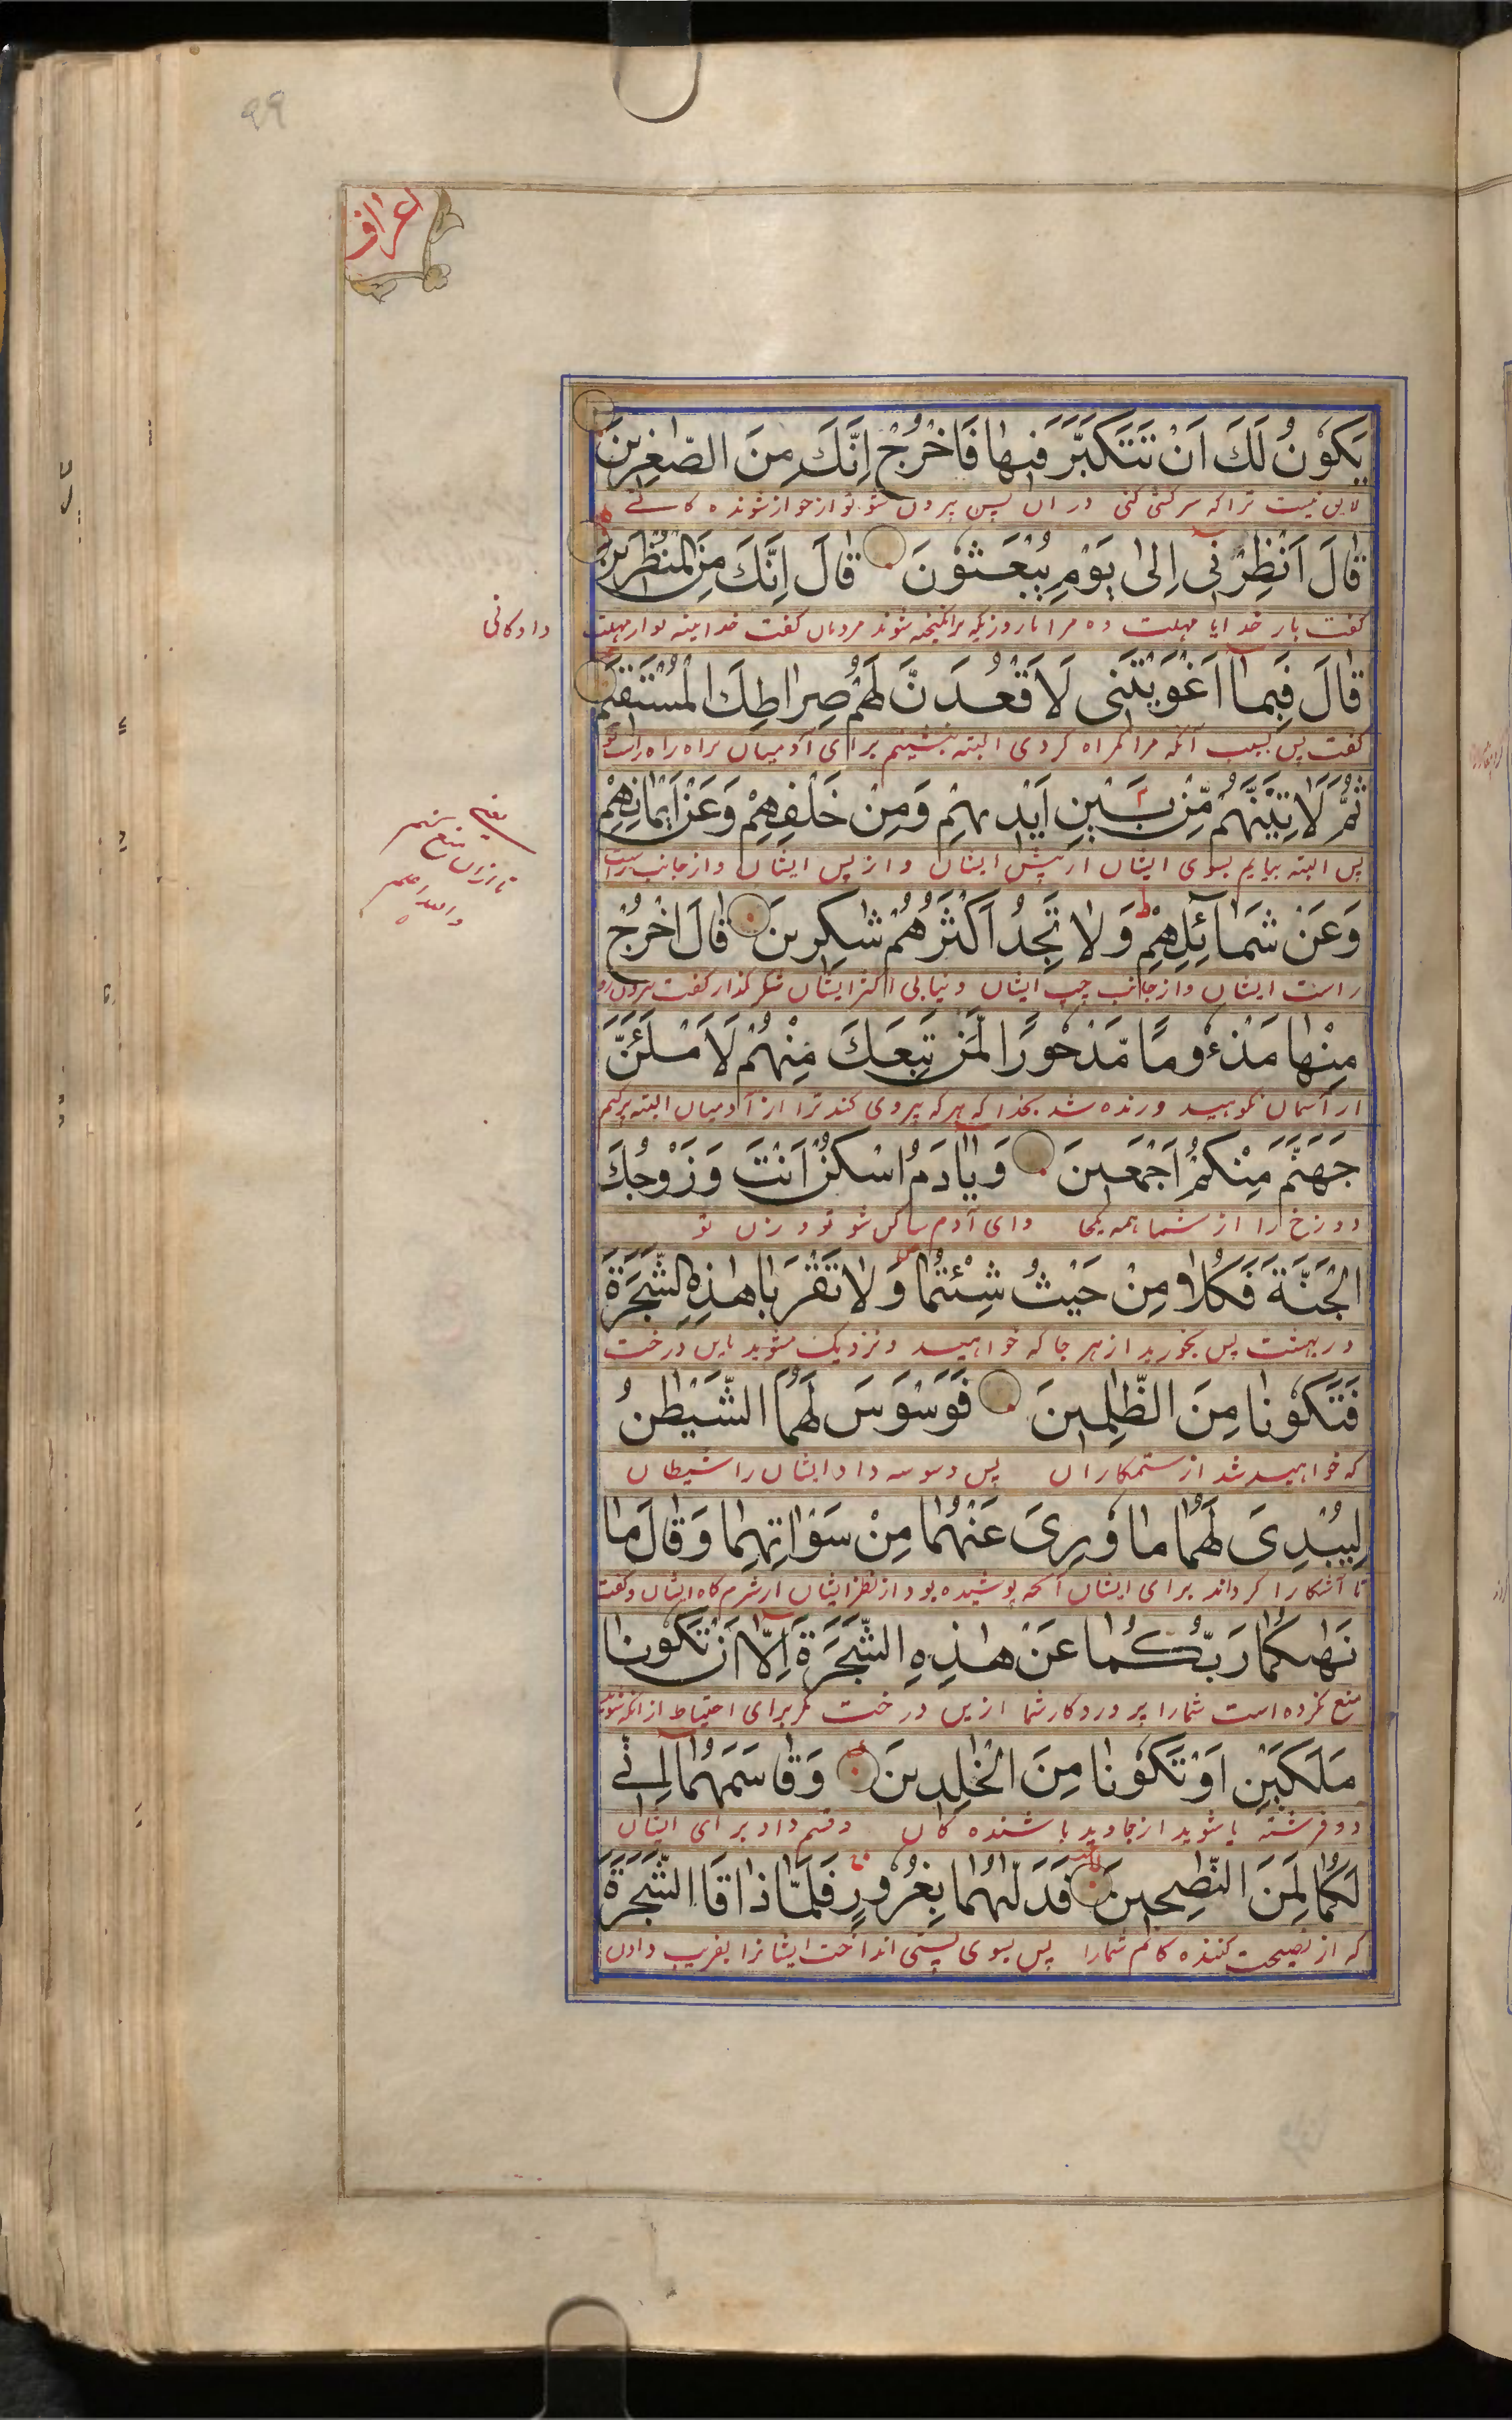 99
اعراف
يَكُونُ لَكَ اَنْ تَتَكَبَّرَ فِيهٰا فَاخْرُجْ اِنَّكَ مِنَ الصّٰغِرِينَ
لایق نیست ترا که سرکشی کنی در آن پس بیرون شو تو از خوار شونده کانے
قٰالَ اَنْظِرْنِى اِلىٰ يَوْمِ يُبْعَثُونَ قٰالَ اِنَّكَ مِنَ الْمُنْظَرِينَ
کفت بار خدایا مهلت ده مرا تا روزیکه برانکیخته شوند مردمان کفت خدا بیته تو از مهلت
داد کانی
قٰالَ فَبِمٰا اَغْوَيْتَنِى لَاَقْعُدَنَّ لَهُمْ صِرٰاطَكَ الْمُسْتَقِيمَ
کفت پس بسبب آنکه مرا کمراه کردی البته بنشینم برای آدمیان براه راه راست تو
ثُمَّ لَاٰتِيَنَّهُمْ مِنْ بَيْنِ اَيْدِيهِمْ وَمِنْ خَلْفِهِمْ وَعَنْ اَيْمٰانِهِمْ
پس البته بیایم بسوی ایشان از پیش ایشان و از پس ایشان و از جانب راست
یعنی
تا از ان منع
والله اعلم
وَعَنْ شَمٰائِلِهِمْ وَلٰا تَجِدُ اَكْثَرَهُمْ شٰكِرِينَ قٰالَ اخْرُجْ
راست ایشان و از جانب چپ ایشان و نیابی اکثر ایشان شکر کذار کفت بیرون رو
مِنْهٰا مَذْءُومًا مَدْحُورًا لَمَنْ تَبِعَكَ مِنْهُمْ لَاَمْلَـَٔنَّ
از آسمان نکوهید و رنده شد بخدا که هر که پیروی کند ترا از آدمیان البته پر کنم
جَهَنَّمَ مِنْكُمْ اَجْمَعِينَ وَيٰاٰدَمُ اسْكُنْ اَنْتَ وَزَوْجُكَ
دوزخ را از شما همه یکجا و ای آدم ساکن شو تو و زن تو
الْجَنَّةَ فَكُلٰا مِنْ حَيْثُ شِئْتُمٰا وَلٰا تَقْرَبٰا هٰذِهِ الشَّجَرَةَ
در بهشت پس بخورید از هر جا که خواهید و نزدیک مشوید باین درخت
فَتَكُونٰا مِنَ الظّٰلِمِينَ فَوَسْوَسَ لَهُمَا الشَّيْطٰنُ
که خواهید شد از ستمکاران پس وسوسه داد ایشان را شیطان
لِيُبْدِىَ لَهُمٰا مٰا وُرِىَ عَنْهُمٰا مِنْ سَوْاٰتِهِمٰا وَقٰالَ مٰا
تا آشکارا کرداند برای ایشان آنچه پوشیده بود از نظر ایشان از شرم کاه ایشان و کفت
نَهٰىكُمٰا رَبُّكُمٰا عَنْ هٰذِهِ الشَّجَرَةِ اِلّٰا اَنْ تَكُونٰا
منع نکرده است شما را پروردکار شما ازین درخت مکر برای احتیاط از انکه شوید
مَلَكَيْنِ اَوْ تَكُونٰا مِنَ الْخٰلِدِينَ وَقٰاسَمَهُمٰا اِنِّے
دو فرشته یا شوید از جاوید باشنده کان و قسم داد برای ایشان
لَكُمٰا لَمِنَ النّٰصِحِينَ فَدَلّٰىهُمٰا بِغُرُورٍ فَلَمّٰا ذٰاقَا الشَّجَرَةَ
که از نصیحت کننده کانم شما را پس بسوی پستی انداخت ایشانرا بفریب دادن